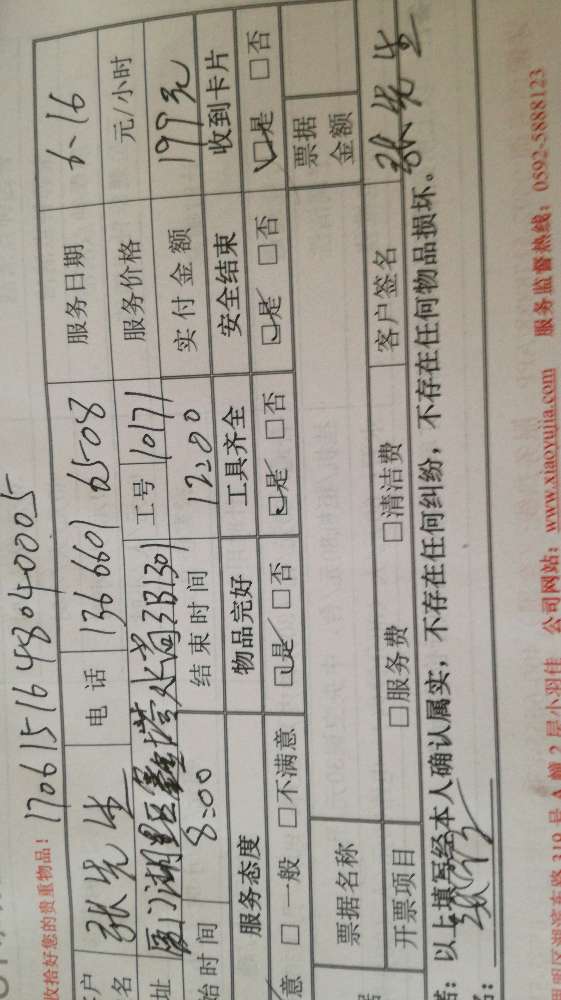 收拾好您的贵重物品!
1706151648040005
户 名 张先生 电话 136 6601 6508 服务日期 6-16
址 厦门湖里区 3B1301 工号 10171 服务价格 元/小时
始时间 8:00 结束时间 12:00 实付金额 199元
服务态度 物品完好 工具齐全 安全结束 收到卡片
意 □一般 □不满意 ☑是 □否 ☑是 □否 ☑是 □否 ☑是 □否
票据名称 票据金额
开票项目 □服务费 □清洁费 客户签名 张先生
: 以上填写经本人确认属实,不存在任何纠纷,不存在任何物品损坏。
湖滨东路319号A幢2层小羽佳 公司网站: www.xiaoyujia.com 服务监督热线: 0592-5888123